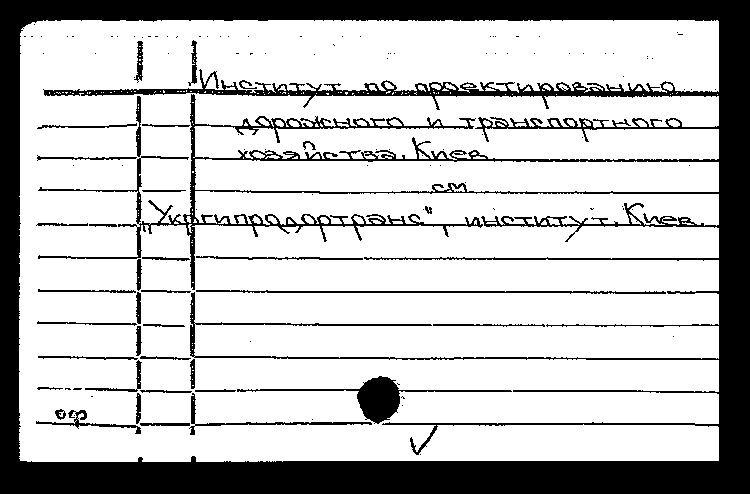 Институт по проектированию
дорожного и транспортного
хозяйства. Киев
см
"Укргипродортранс", институт. Киев.
оф